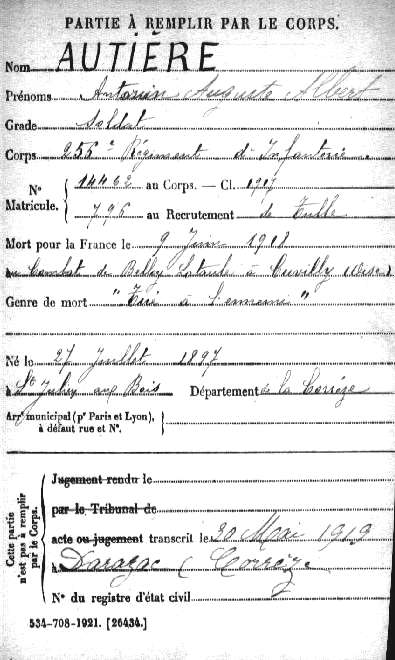 PARTIE À REMPLIR PAR LE CORPS.
Nom AUTIÈRE
Prénoms Antonin Auguste Albert
Grade Soldat
Corps 256e Régiment d'Infanterie
N° Matricule. { 14462 au Corps. — Cl. 1917
796 au Recrutement de Tulle
Mort pour la France le 9 Juin 1918
au Combat de à Cuvilly (Oise)
Genre de mort "Tué à l'ennemi"
Né le 27 Juillet 1897
à St Julien aux Bois Département de la Corrèze
Arrt municipal (pr Paris et Lyon),
à défaut rue et N°.
Cette partie n'est pas à remplir par le Corps.
Jugement rendu le
par le Tribunal de
acte ou jugement transcrit le 20 Mai 1919
à Darazac (Corrèze
N° du registre d'état civil
534-708-1921. [26434.]